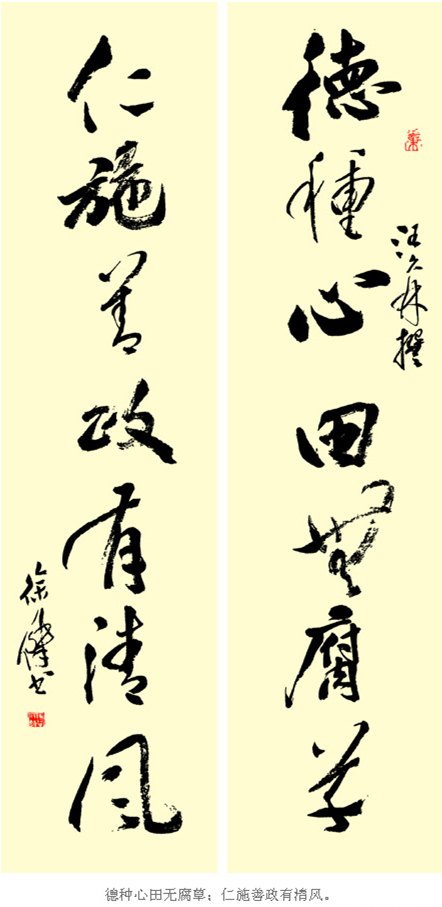 德種心田無腐草
汪林撰
仁施善政有清風
徐書
德种心田无腐草；仁施善政有清风。